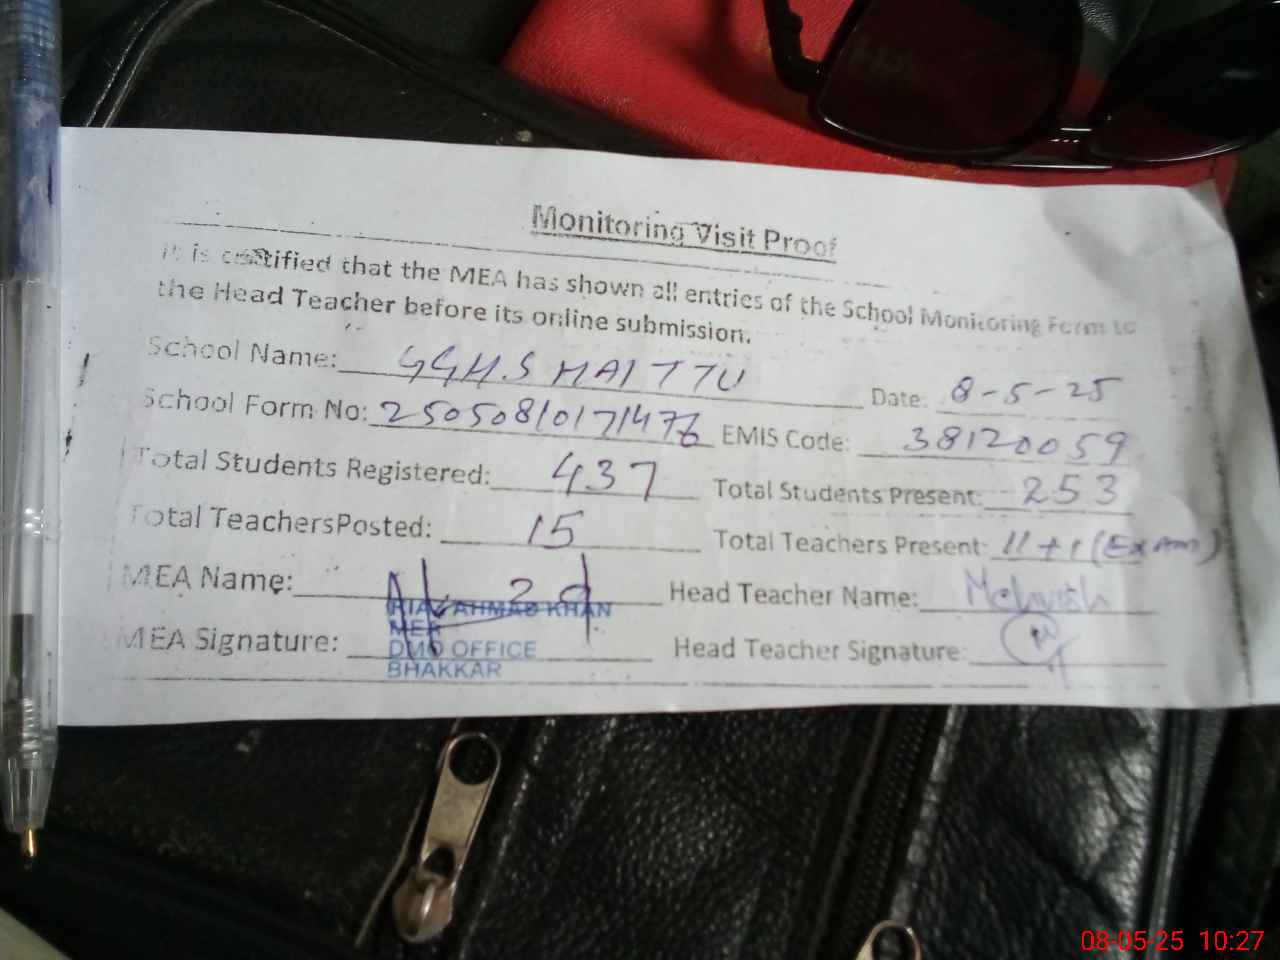 Monitoring Visit Proof
It is certified that the MEA has shown all entries of the School Monitoring Form to
the Head Teacher before its online submission.
School Name: GGHS HAITTU Date: 8-5-25
School Form No: 25050810171476 EMIS Code: 38120059
Total Students Registered: 437 Total Students Present: 253
Total TeachersPosted: 15 Total Teachers Present: 11+1 (Exam)
MEA Name: Head Teacher Name: Mehvish
RIAZ AHMAD KHAN
MEA
MEA Signature: DMO OFFICE Head Teacher Signature:
BHAKKAR
08-05-25 10:27